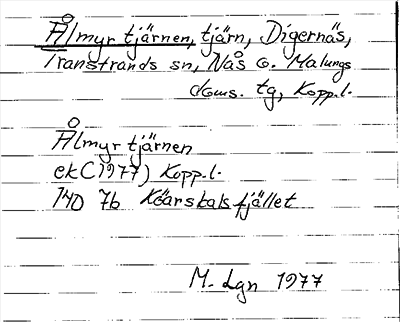 Ålmyrtjärnen, tjärn, Digernäs,
Transtrands sn, Nås o. Malungs
doms. tg, Kopp.l.
Ålmyrtjärnen
ekC(1977) Kopp.l.
14D 7b Köarskalsfjället
M. Lgn 1977